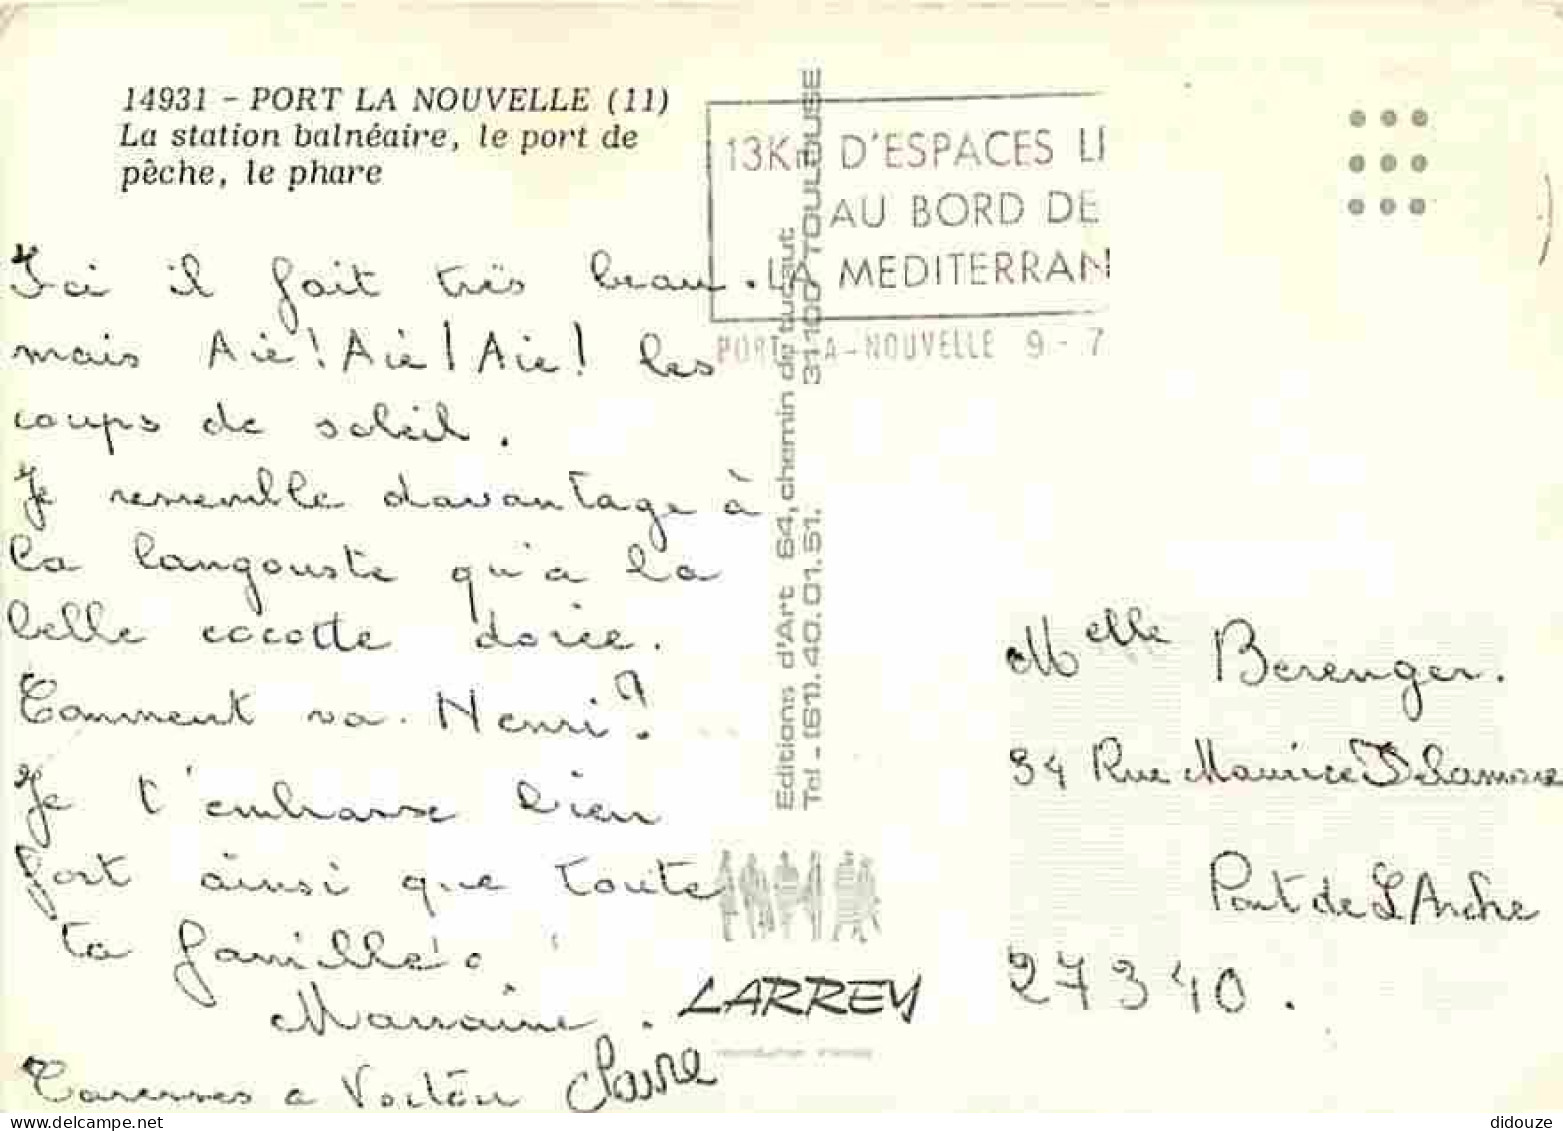 14931 - PORT LA NOUVELLE (11)
La station balnéaire, le port de
pêche, le phare
13Km D'ESPACES LI
AU BORD DE
LA MEDITERRAN
PORT LA-NOUVELLE 9 - 7
Ici il fait très beau.
mais Aie! Aie! Aie! les
coups de soleil.
Je ressemble davantage à
la langouste qu'a la
belle cocotte dorée.
Comment va Henri?
Je t'embrasse bien
fort ainsi que toute
ta famille.
Marraine.
Caresses a
Claire
Editions d'Art 64, chemin de tucaut
Tel - (61). 40.01.51. 31100 TOULOUSE
LARREY
Melle Berenger.
34 Rue Maurice Delamare
Pont de L'Arche
27340.
didouze